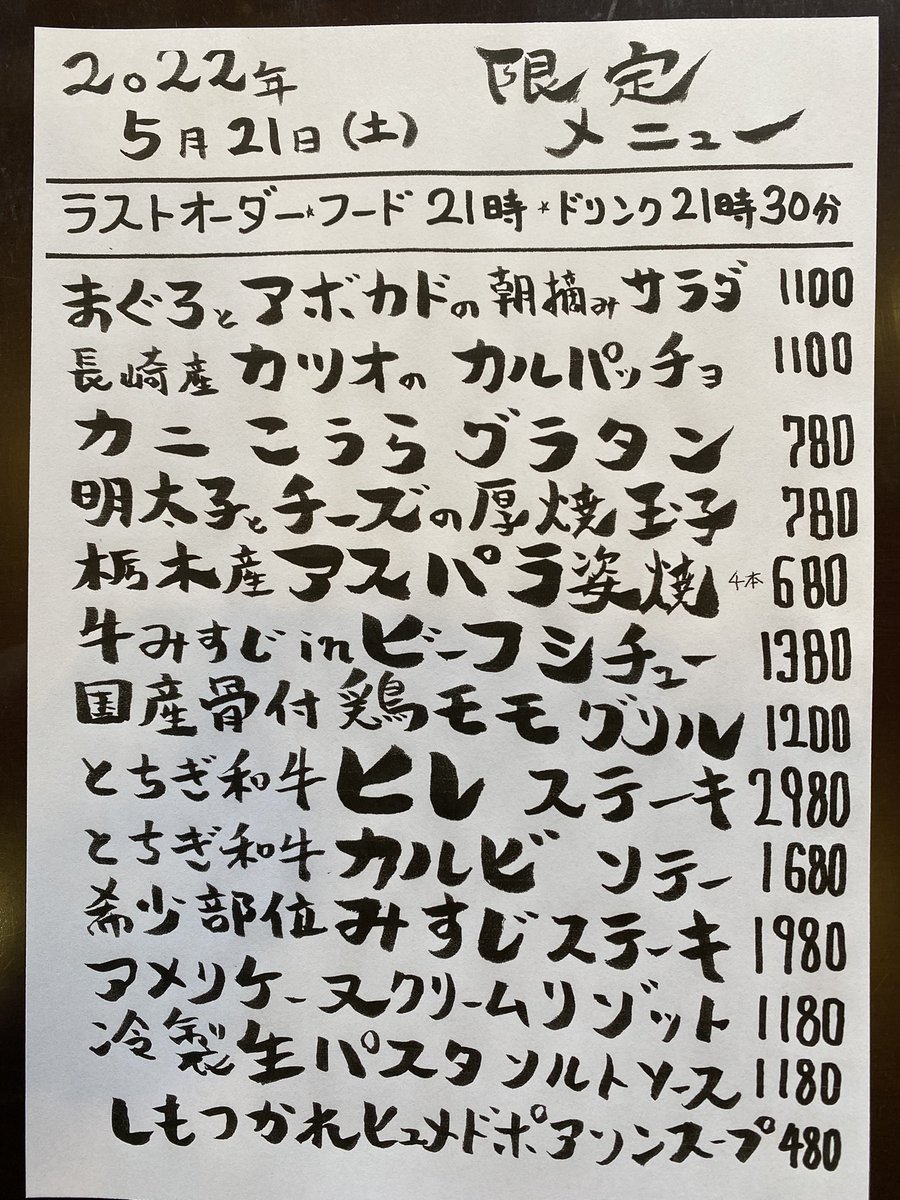 2022年 限定
5月21日(土) メニュー
ラストオーダー★フード21時★ドリンク21時30分
まぐろとアボカドの朝摘みサラダ 1100
長崎産カツオのカルパッチョ 1100
カニこうらグラタン 780
明太子とチーズの厚焼玉子 780
栃木産アスパラ姿焼 4本 680
牛みすじinビーフシチュー 1380
国産骨付鶏モモグリル 1200
とちぎ和牛ヒレステーキ 2980
とちぎ和牛カルビソテー 1680
希少部位みすじステーキ 1980
アメリケーヌクリームリゾット 1180
冷製生パスタソルトソース 1180
しもつかれヒュメドポアソンスープ 480